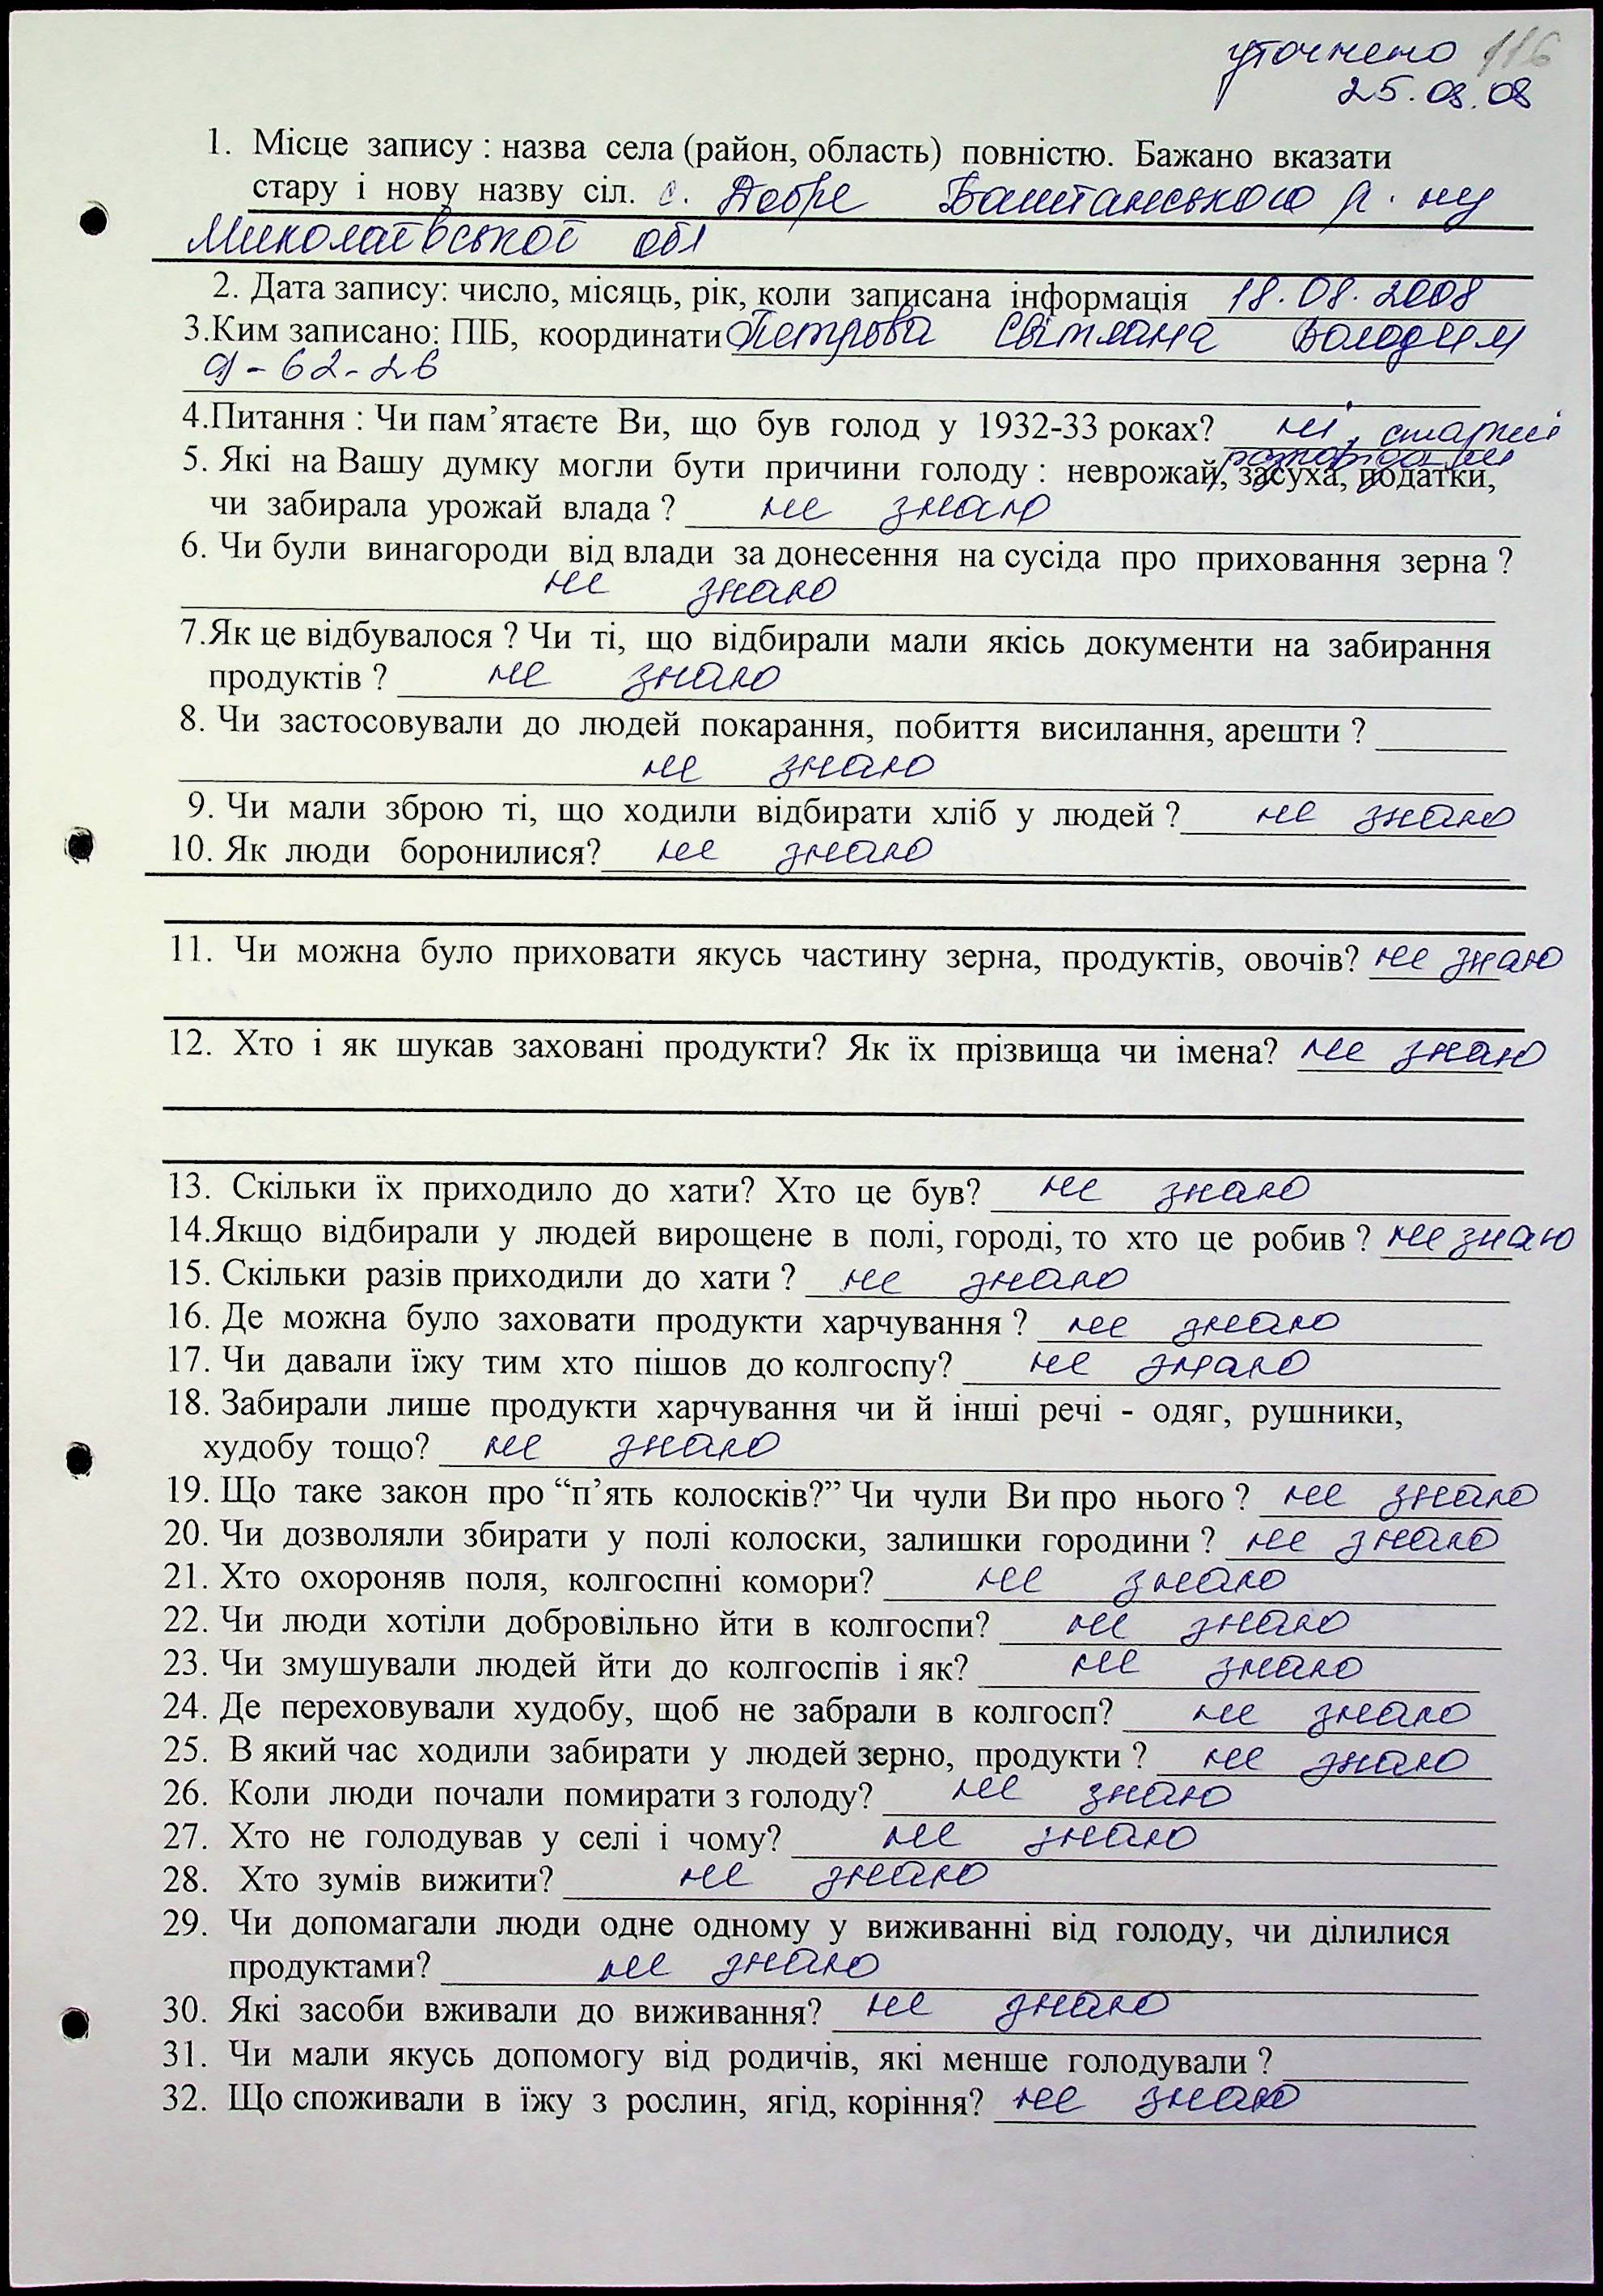 уточнено 116
25.08.08
1. Місце запису : назва села (район, область) повністю. Бажано вказати
стару і нову назву сіл. с. Добре Баштанського р-ну
Миколаївської обл
2. Дата запису: число, місяць, рік, коли записана інформація 18.08.2008
3.Ким записано: ПІБ, координати Петрова Світлана Володим
9-62-26
4.Питання : Чи пам’ятаєте Ви, що був голод у 1932-33 роках? ні, старші
розповідали
5. Які на Вашу думку могли бути причини голоду : неврожай, засуха, податки,
чи забирала урожай влада ? не знаю
6. Чи були винагороди від влади за донесення на сусіда про приховання зерна ?
не знаю
7.Як це відбувалося ? Чи ті, що відбирали мали якісь документи на забирання
продуктів ? не знаю
8. Чи застосовували до людей покарання, побиття висилання, арешти ?
не знаю
9. Чи мали зброю ті, що ходили відбирати хліб у людей ? не знаю
10. Як люди боронилися? не знаю
11. Чи можна було приховати якусь частину зерна, продуктів, овочів? не знаю
12. Хто і як шукав заховані продукти? Як їх прізвища чи імена? не знаю
13. Скільки їх приходило до хати? Хто це був? не знаю
14.Якщо відбирали у людей вирощене в полі, городі, то хто це робив ? не знаю
15. Скільки разів приходили до хати ? не знаю
16. Де можна було заховати продукти харчування ? не знаю
17. Чи давали їжу тим хто пішов до колгоспу? не знаю
18. Забирали лише продукти харчування чи й інші речі - одяг, рушники,
худобу тощо? не знаю
19. Що таке закон про “п’ять колосків?” Чи чули Ви про нього ? не знаю
20. Чи дозволяли збирати у полі колоски, залишки городини ? не знаю
21. Хто охороняв поля, колгоспні комори? не знаю
22. Чи люди хотіли добровільно йти в колгоспи? не знаю
23. Чи змушували людей йти до колгоспів і як? не знаю
24. Де переховували худобу, щоб не забрали в колгосп? не знаю
25. В який час ходили забирати у людей зерно, продукти ? не знаю
26. Коли люди почали помирати з голоду? не знаю
27. Хто не голодував у селі і чому? не знаю
28. Хто зумів вижити? не знаю
29. Чи допомагали люди одне одному у виживанні від голоду, чи ділилися
продуктами? не знаю
30. Які засоби вживали до виживання? не знаю
31. Чи мали якусь допомогу від родичів, які менше голодували ?
32. Що споживали в їжу з рослин, ягід, коріння? не знаю